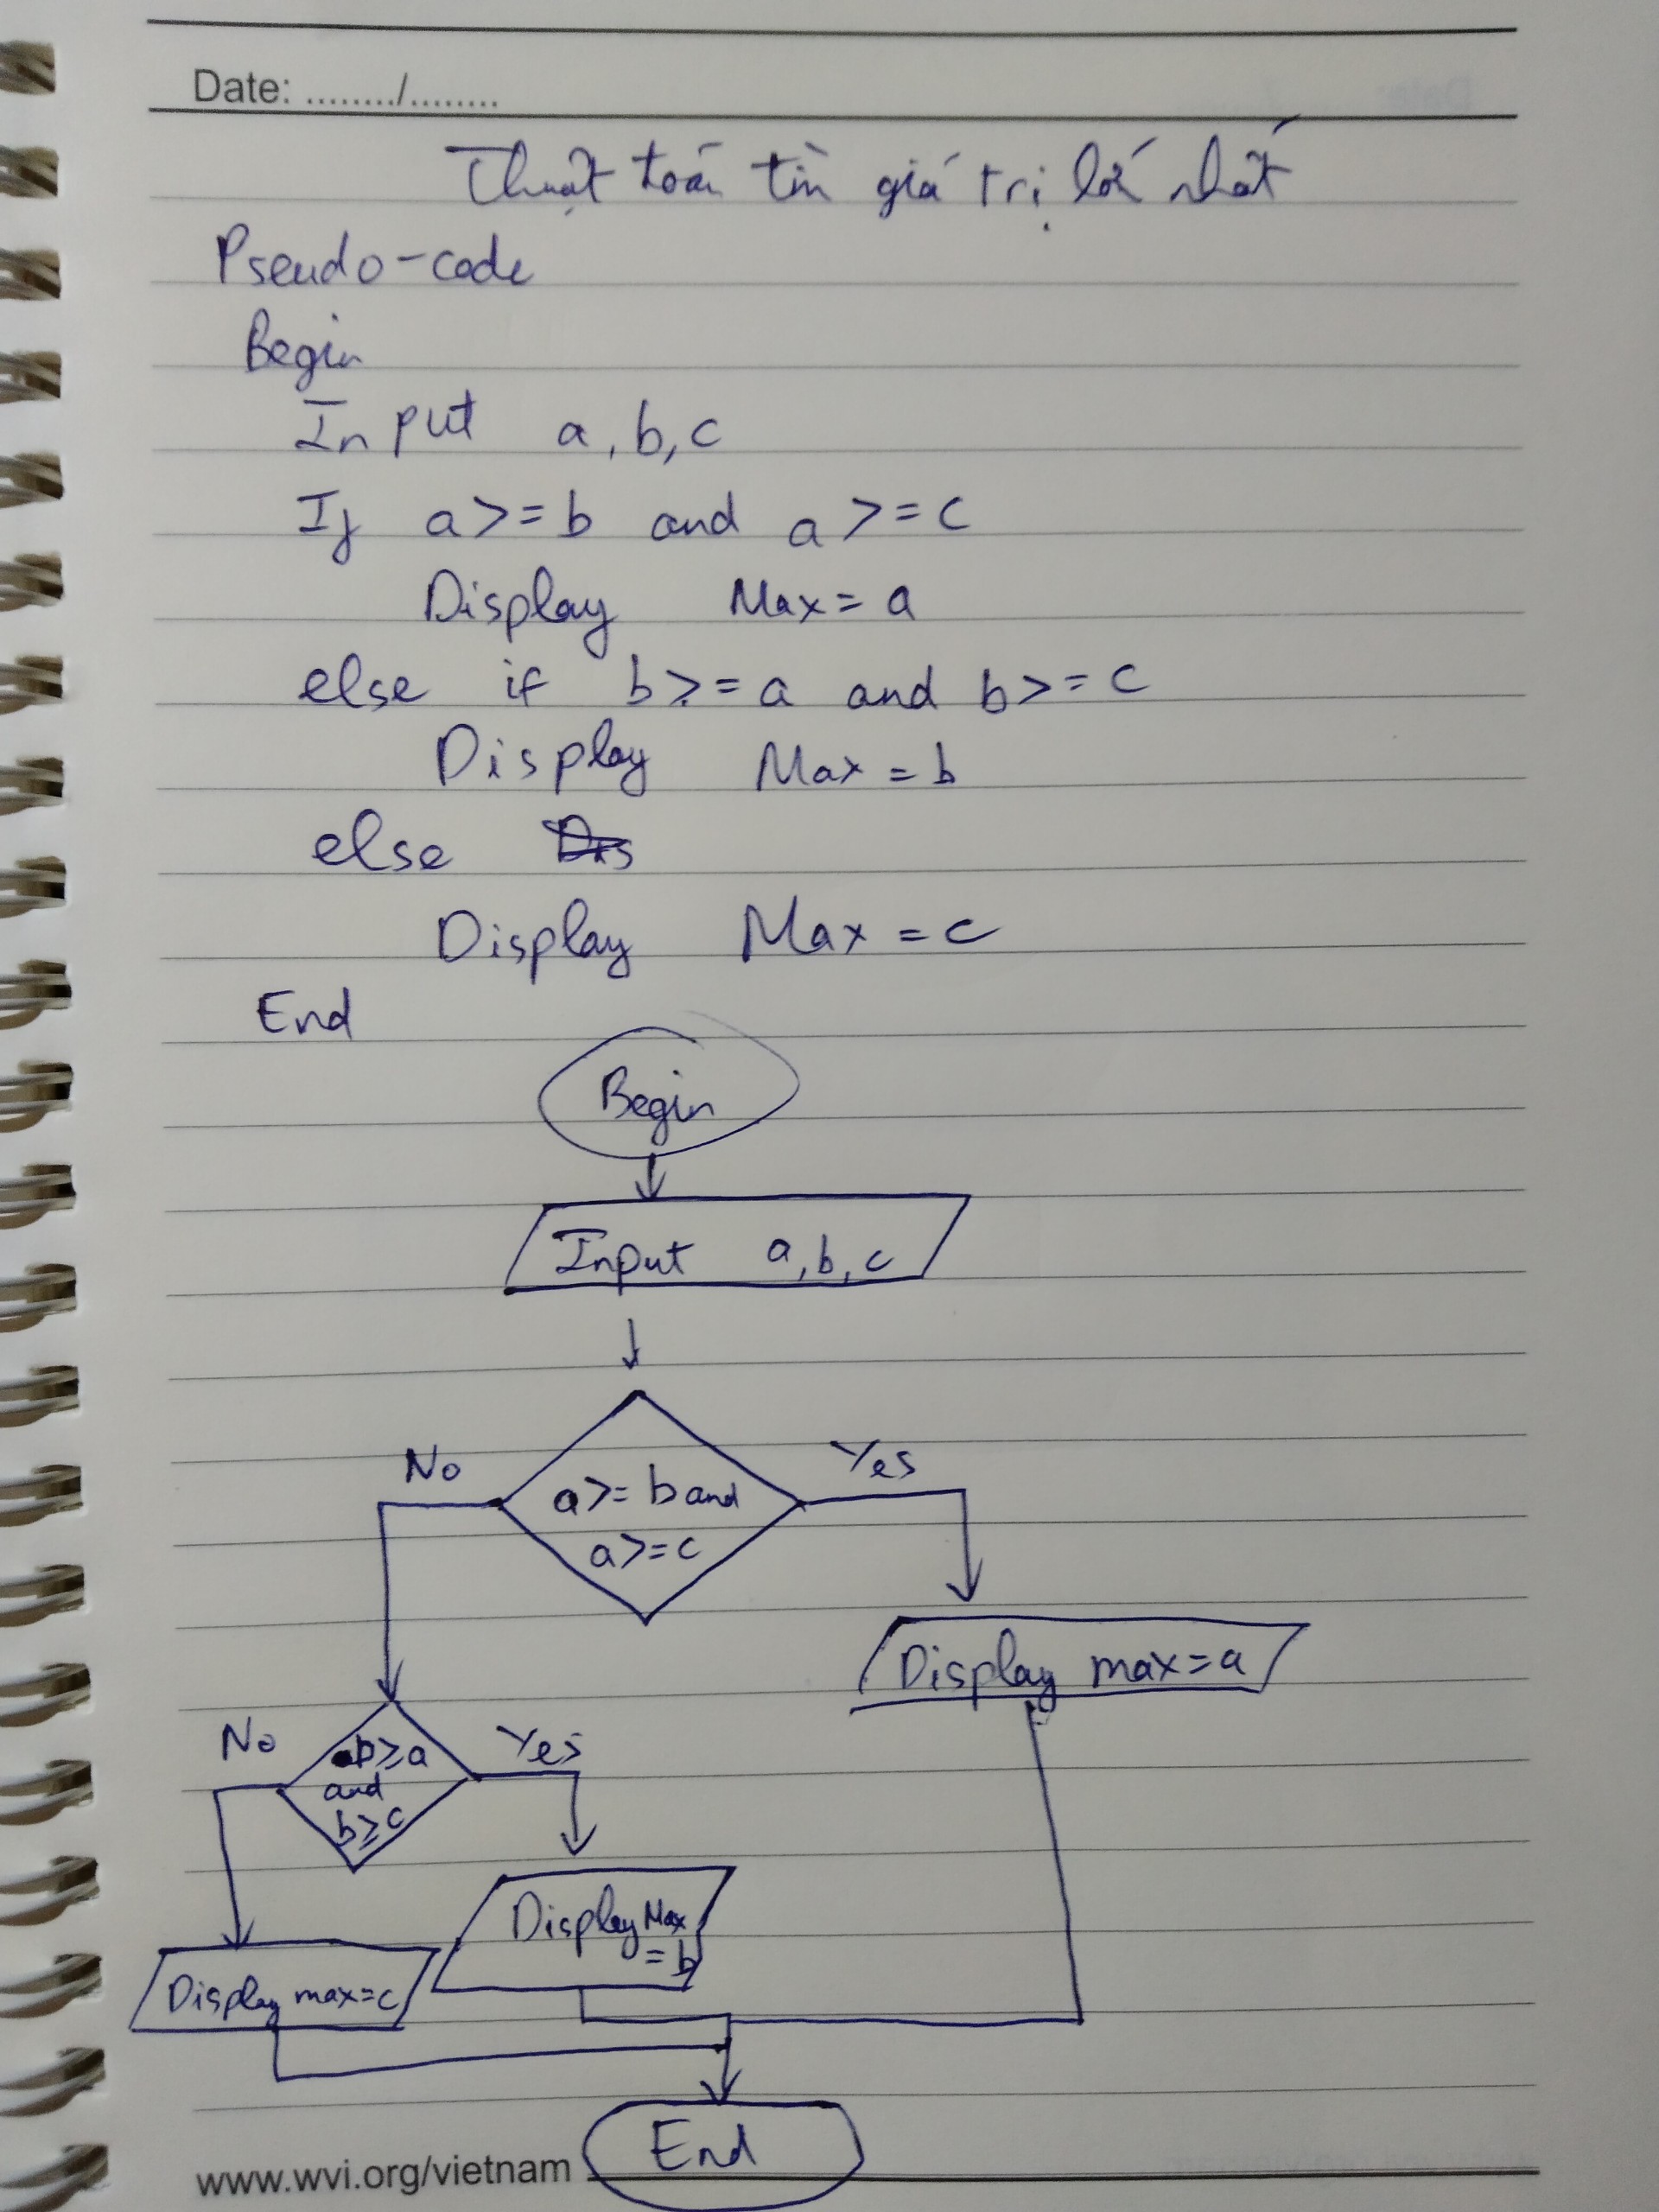 Date: ......../........
Thuật toán tìn giá trị lớ nhất
Pseudo-code
Begin
Input a, b, c
If a >= b and a >= c
Display Max = a
else if b >= a and b >= c
Display Max = b
else Dis
Display Max = c
End
Begin
Input a, b, c
No
Yes
a >= b and
a >= c
Display max = a
No
Yes
b ≥ a
and
b ≥ c
Display Max
= b
Display max = c
End
www.wvi.org/vietnam